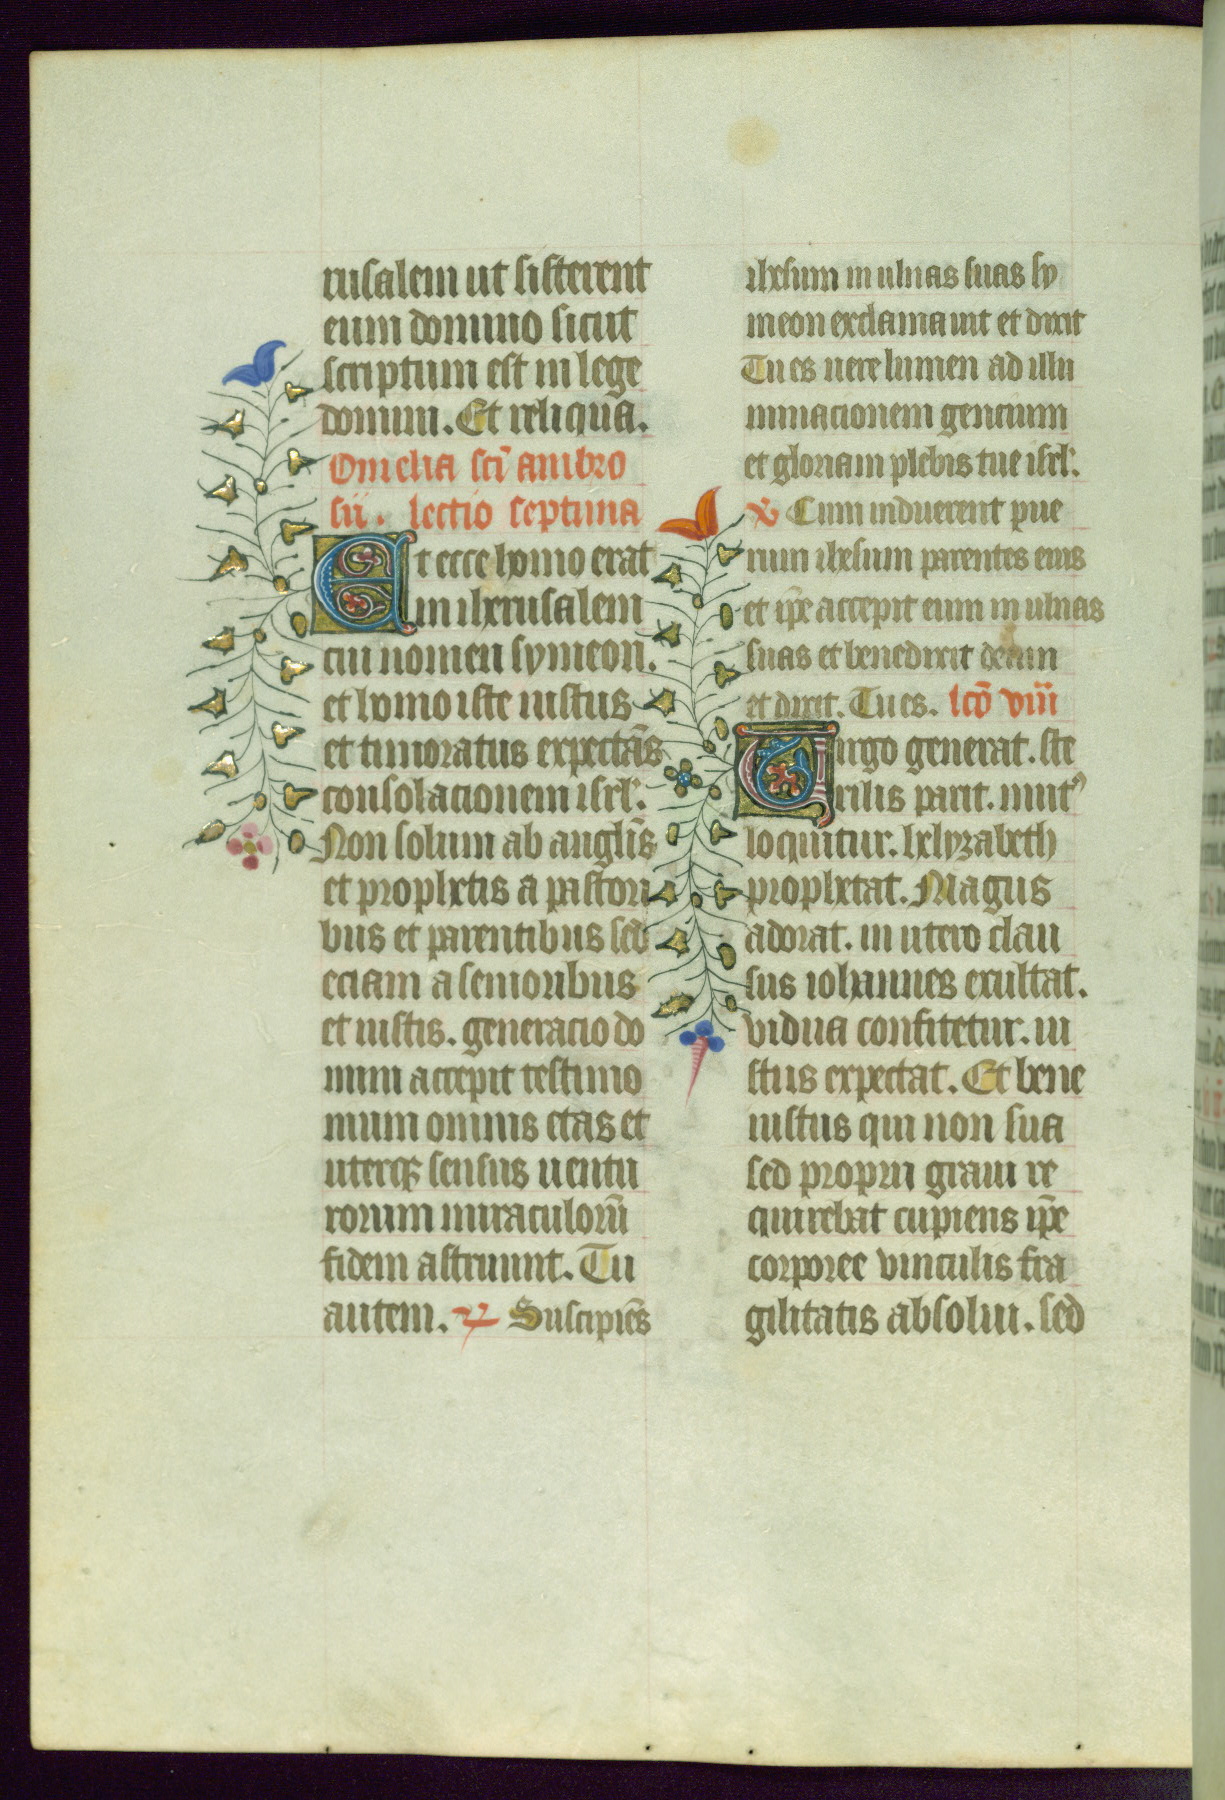 rusalem ut sisterent
eum domino sicut
scriptum est in lege
domini. Et reliqua.
Omelia sci̅ ambro
sii. lectio septima
Et ecce homo erat
in iherusalem
cui nomen symeon.
et homo iste iustus
et timoratus expecta̅s
consolacionem isrl'.
Non solum ab angl'is
et prophetis a pastori
bus et parentibus sed
eciam a senioribus
et iustis. generacio do
mini accepit testimo
nium omnis etas et
uterq; sensus uentu
rorum miraculoru̅
fidem astruunt. Tu
autem. R Suscipie̅s
ihesum in ulnas suas sy
meon exclamauit et dixit
Tu es uere lumen ad illu
minacionem gencium
et gloriam plebis tue isrl'.
V Cum inducerent pue
rum ihesum parentes eius
et ip̅e accepit eum in ulnas
suas et benedixit deum
et dixit. Tu es. lco̅ viii
Virgo generat. ste
rilis parit. mut'
loquitur. helyzabeth
prophetat. Magus
adorat. in utero clau
sus iohannes exultat.
vidua confitetur. iu
stus expectat. Et bene
iustus qui non sua
sed proprii graui re
quirebat cupiens ip̅e
corporee vinculis fra
gilitatis absolui. sed